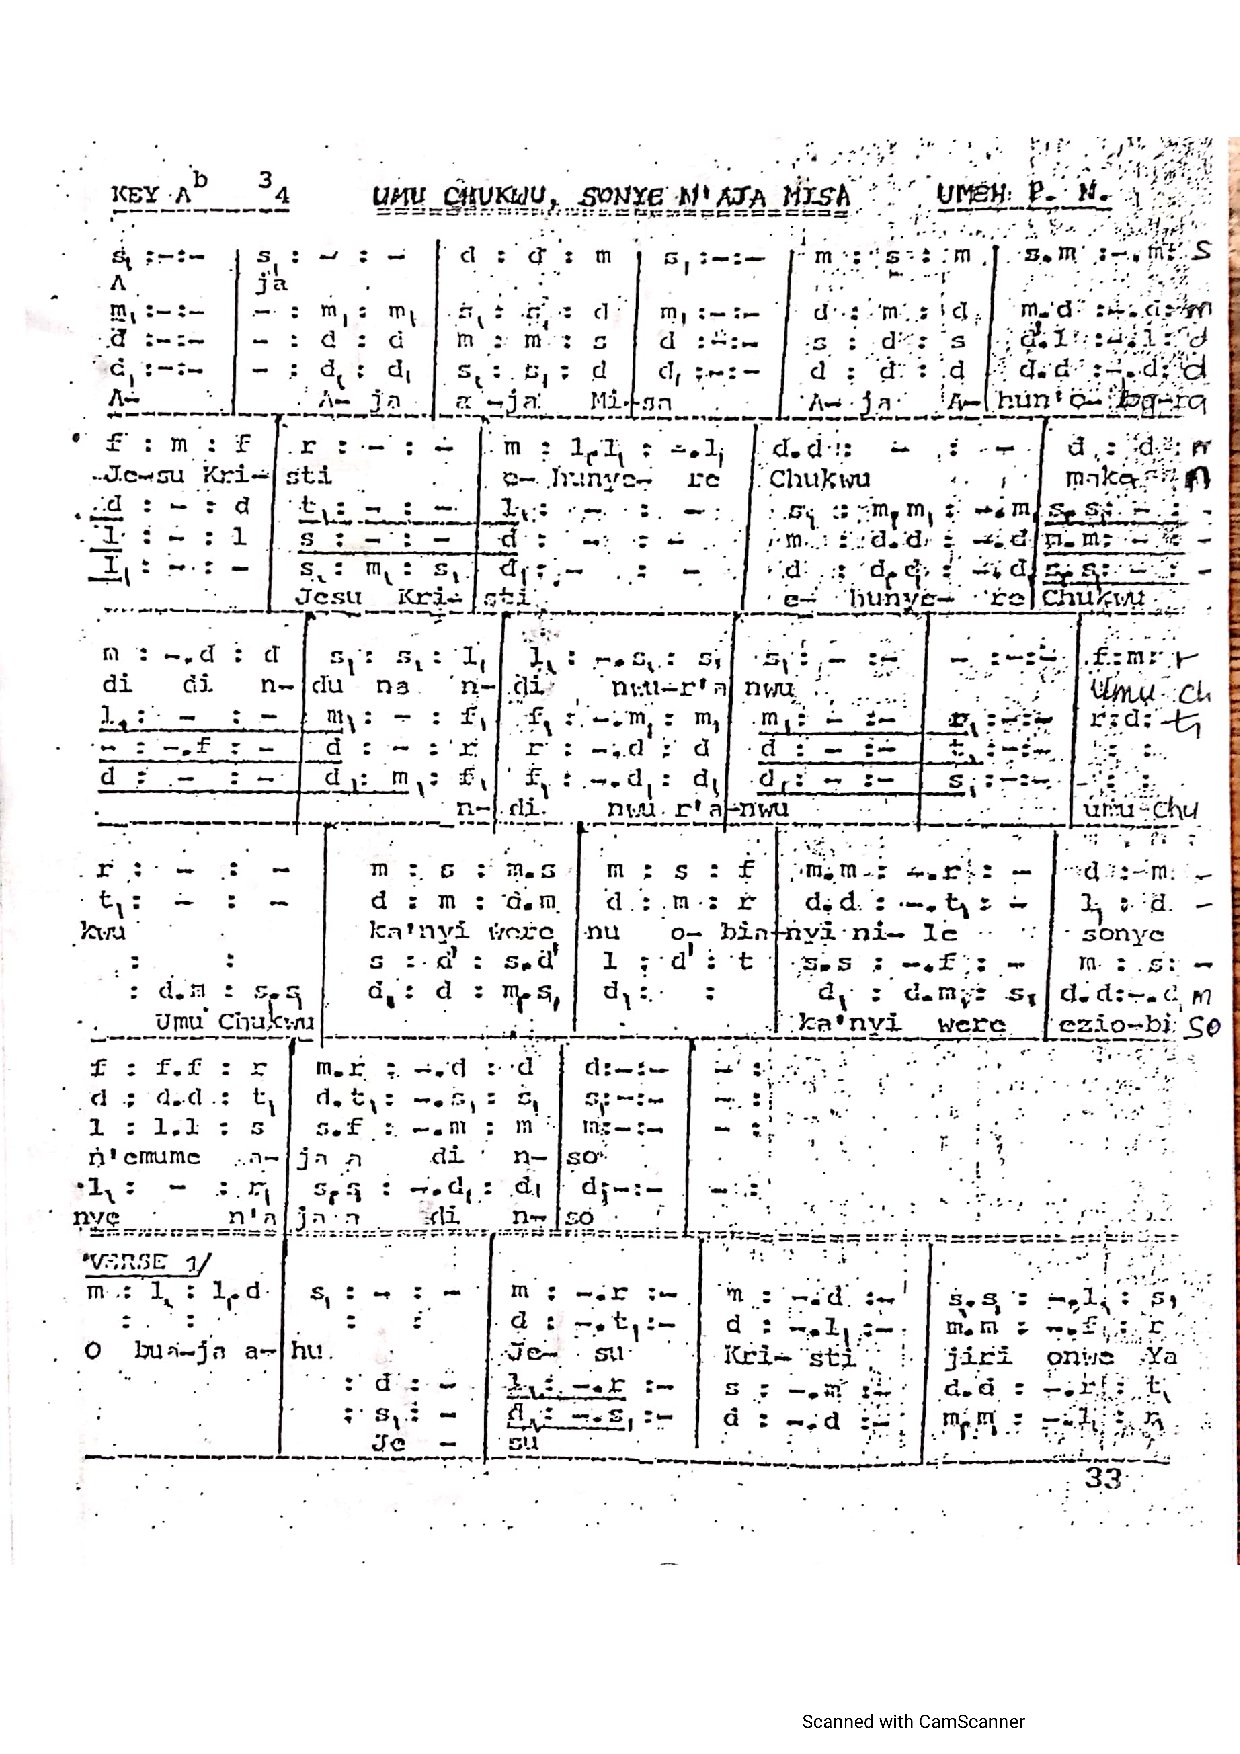 KEY Ab 3 4 UMU CHUKWU, SONYE N'AJA MISA UMEH P. N.
s₁ :-:- | s₁ : - : - | d : d : m | s₁ :-:- | m : s : m | s.m :-.m: s
A ja
m₁ :-:- | - : m₁ : m₁ | s₁ : s₁ : d | m₁ :-:- | d : m : d | m.d :-.d: m
d :-:- | - : d : d | m : m : s | d :-:- | s : d' : s
d₁ :-:- | - : d₁ : d₁ | s₁ : s₁ : d | d₁ :-:- | d : d : d | d.d :-.d: d
A- A- ja a -ja Mi-sa A- ja A- hun'o- bq-rq
f : m : f | r : - : - | m : l₁.l₁ : -.l₁ | d.d : - : - | d : d: m
Je-su Kri- sti e- hunye- re Chukwu maka n
d : - : d | t₁ : - : - | l₁ : - : - | s₁ : m₁.m₁ : -.m₁ | s₁.s₁: - : -
l : - : l | s : - : - | d : - : - | m : d.d : -.d | m.m: - : -
l₁ : - : - | s₁ : m₁ : s₁ | d₁ : - : - | d : d.d : -.d | s.s: - : -
Jesu Kri- sti e- hunye- re Chukwu
m : -.d : d | s₁ : s₁ : l₁ | l₁ : -.s₁ : s₁ | s₁ : - :- | - :-:- | f:m: r
di di n- du na n- di nwu-r'a nwu Umu ch
l₁ : - : - | m₁ : - : f₁ | f₁ : -.m₁ : m₁ | m₁ : - :- | r₁ :-:- | r:d: t₁
- : -.f : - | d : - : r | r : -.d : d | d : - :- | t₁ :-:- | : :
d : - : - | d₁ : m₁ : f₁ | f₁ : -.d₁ : d₁ | d₁ : - :- | s₁ :-:- | : :
n- di nwu r'a-nwu umu-chu
r : - : - | m : s : m.s | m : s : f | m.m : -.r : - | d :-m: -
t₁ : - : - | d : m : d.m | d : m : r | d.d : -.t₁ : - | l₁ : d -
kwu ka'nyi were nu o- bia-nyi ni- le sonye
: : | s : d' : s.d' | l : d' : t | s.s : -.f : - | m : s: -
: d.m : s.s | d₁ : d : m.s₁ | d₁ : : | d₁ : d.m₁ : s₁ | d.d:-.d, m
Umu Chukwu ka'nyi were ezio-bi so
f : f.f : r | m.r : -.d : d | d:-:- | - :
d : d.d : t₁ | d.t₁ : -.s₁ : s₁ | s₁:-:- | - :
l : l.l : s | s.f : -.m : m | m:-:- | - :
n'emume a- ja a di n- so
l₁ : - : r₁ | s₁.s₁ : -.d₁ : d₁ | d₁:-:- | - :
nye n'a ja a di n- so
VERSE 1/
m : l₁ : l₁.d | s₁ : - : - | m : -.r :- | m : -.d :- | s₁.s₁ : -.l₁ : s₁
: : | : : | d : -.t₁ :- | d : -.l₁ :- | m.m : -.f₁ : r
O bua-ja a- hu. Je- su Kri- sti jiri onwe Ya
: d : - | l₁ : -.r :- | s : -.m :- | d.d : -.r : t₁
: s₁ : - | : -.s₁ :- | d : -.d :-
Je - su
33
Scanned with CamScanner